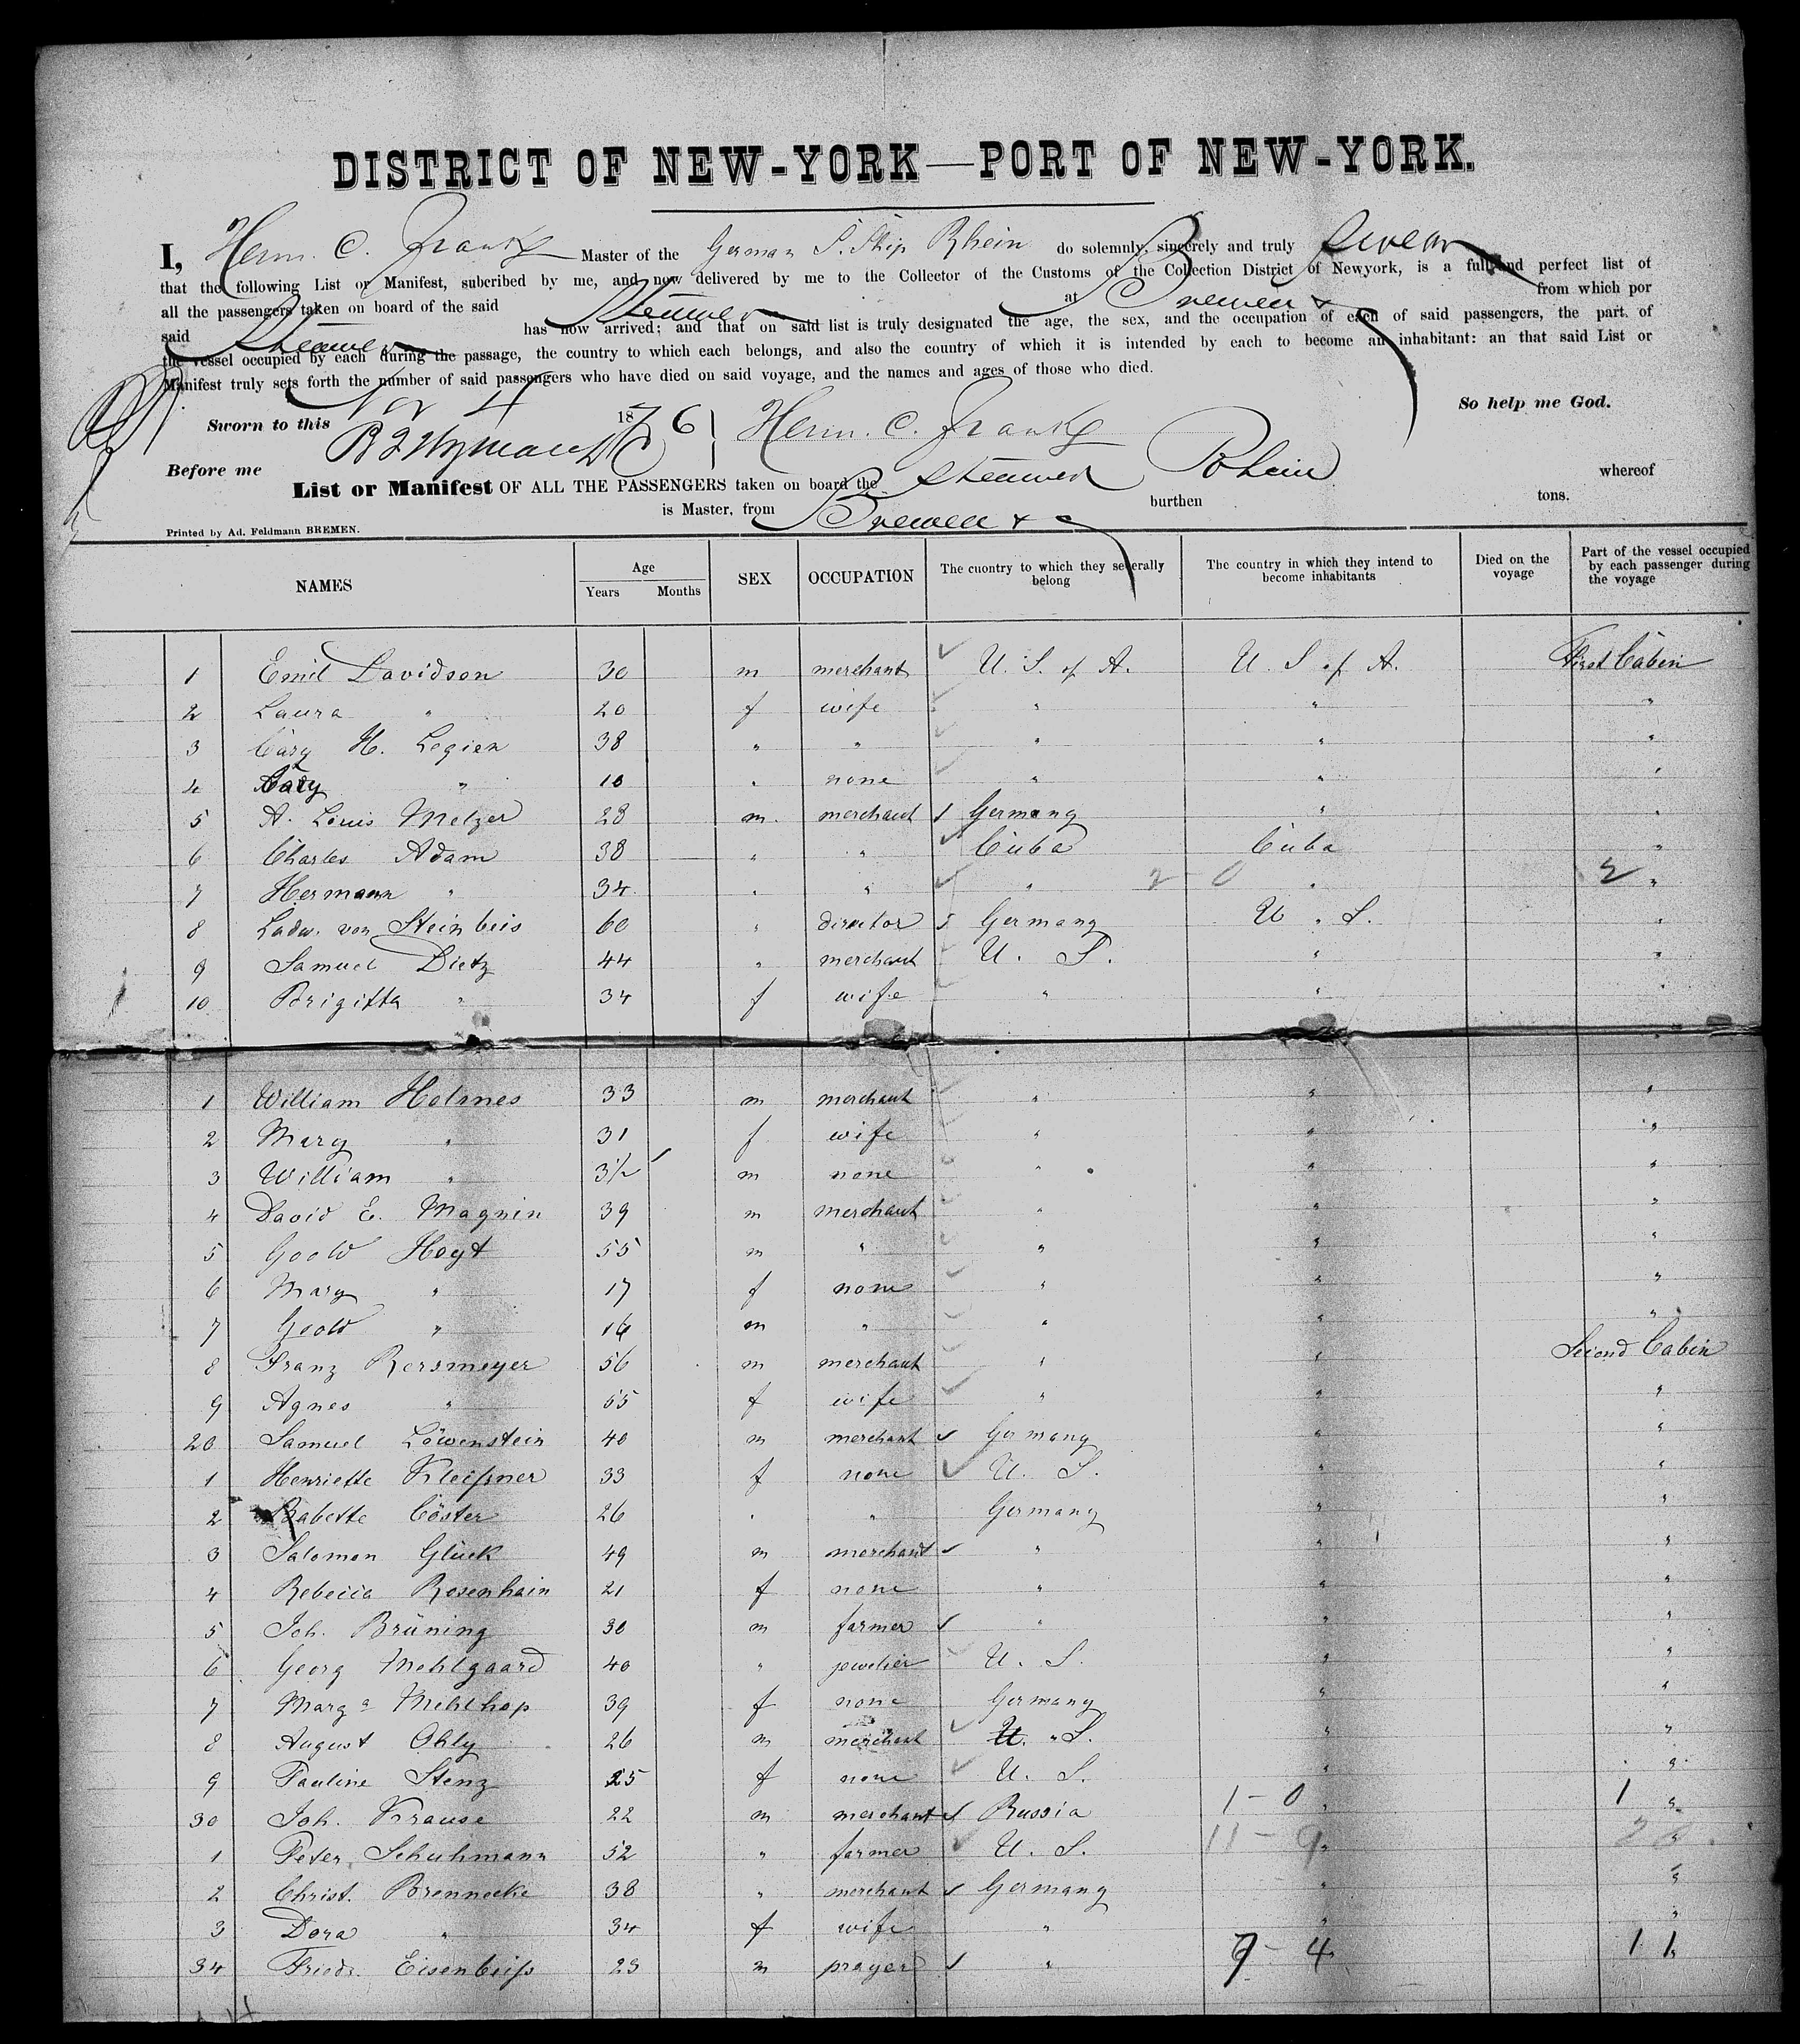 DISTRICT OF NEW-YORK—PORT OF NEW-YORK.
I, Herm. C. Franke Master of the German S. Ship Rhein do solemnly, sincerely and truly swear
that the following List or Manifest, subcribed by me, and now delivered by me to the Collector of the Customs of the Collection District of Newyork, is a full and perfect list of
all the passengers taken on board of the said Steamer at Bremen & from which por
said Steamer has now arrived; and that on said list is truly designated the age, the sex, and the occupation of each of said passengers, the part. of
the vessel occupied by each during the passage, the country to which each belongs, and also the country of which it is intended by each to become an inhabitant: an that said List or
Manifest truly sets forth the number of said passengers who have died on said voyage, and the names and ages of those who died.
So help me God.
Sworn to this Nov 4 1876 Herm. C. Franke
Before me
List or Manifest OF ALL THE PASSENGERS taken on board the Steamer Rhein whereof
is Master, from Bremen & burthen tons.
Printed by Ad. Feldmann BREMEN.
NAMES Age Years Months SEX OCCUPATION The cuontry to which they severally belong The country in which they intend to become inhabitants Died on the voyage Part of the vessel occupied by each passenger during the voyage
1 Emil Davidson 30 m merchant U. S. of A. U. S of A. First Cabin
2 Laura " 20 f wife " " "
3 Cary H. Legien 38 " " " " "
4 Caty " 10 " none " " "
5 A. Louis Melzer 28 m. merchant Germany " "
6 Charles Adam 38 " " Cuba Cuba "
7 Hermann " 34 " " " 2 0 " 2 "
8 Ludw. von Steinbeis 60 " director Germany U. S. "
9 Samuel Dietz 44 " merchant U. S. " "
10 Brigitta " 34 f wife " " "
1 William Holmes 33 m merchant " " "
2 Mary " 31 f wife " " "
3 William " 3½ m none " " "
4 David E. Magnin 39 m merchant " " "
5 Goold Hoyt 55 m " " " "
6 Mary " 17 f none " " "
7 Goold " 16 m " " " "
8 Franz Rersmeyer 56 m merchant " " Second Cabin
9 Agnes " 55 f wife " " "
20 Samuel Löwenstein 40 m merchant Germany " "
1 Henriette Kleißner 33 f none U. S. " "
2 Babette Cöster 26 " " Germany " "
3 Salomon Glück 49 m merchant " " "
4 Rebecca Rosenhain 21 f none " " "
5 Joh. Brüning 30 m farmer " " "
6 Georg Mehlgaard 40 " jewelier U. S. " "
7 Marga Mehlhop 39 f none Germany " "
8 August Ohly 26 m merchant U. S. " "
9 Pauline Stenz 25 f none U. S. " "
30 Joh. Krause 22 m merchant Russia 1-0 " 1 "
1 Peter Schuhmann 52 " farmer U. S. 11-9 " "
2 Christ. Brennecke 38 " merchant Germany " "
3 Dora " 34 f wife " " "
34 Friedr. Eisenbeiß 23 m prayer " 7-4 11